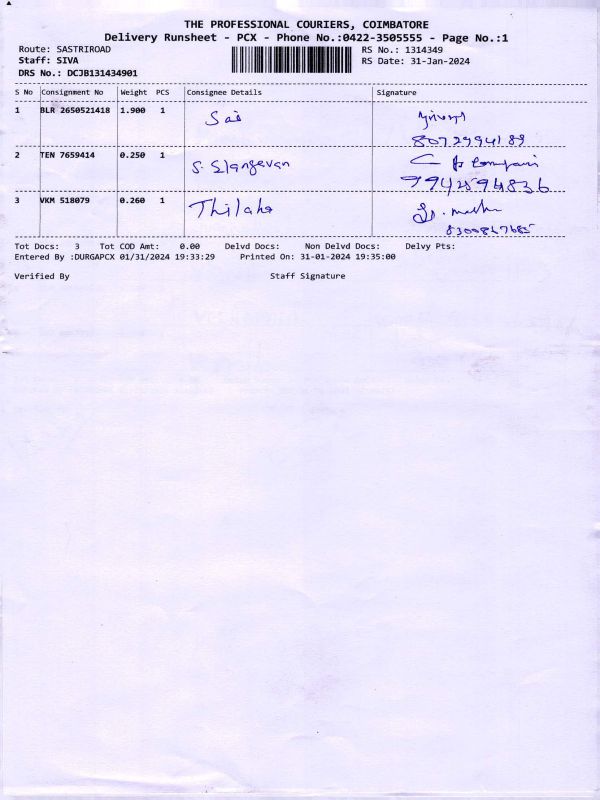 THE PROFESSIONAL COURIERS, COIMBATORE
Delivery Runsheet - PCX - Phone No.:0422-3505555 - Page No.:1
Route: SASTRIROAD RS No.: 1314349
Staff: SIVA RS Date: 31-Jan-2024
DRS No.: DCJB131434901
S No Consignment No Weight PCS Consignee Details Signature
1 BLR 2650521418 1.900 1 Sai
8072994189
2 TEN 7659414 0.250 1 S. Elangevan
9942594836
3 VKM 518079 0.260 1 Thilaka
Tot Docs: 3 Tot COD Amt: 0.00 Delvd Docs: Non Delvd Docs: Delvy Pts:
Entered By :DURGAPCX 01/31/2024 19:33:29 Printed On: 31-01-2024 19:35:00
Verified By Staff Signature